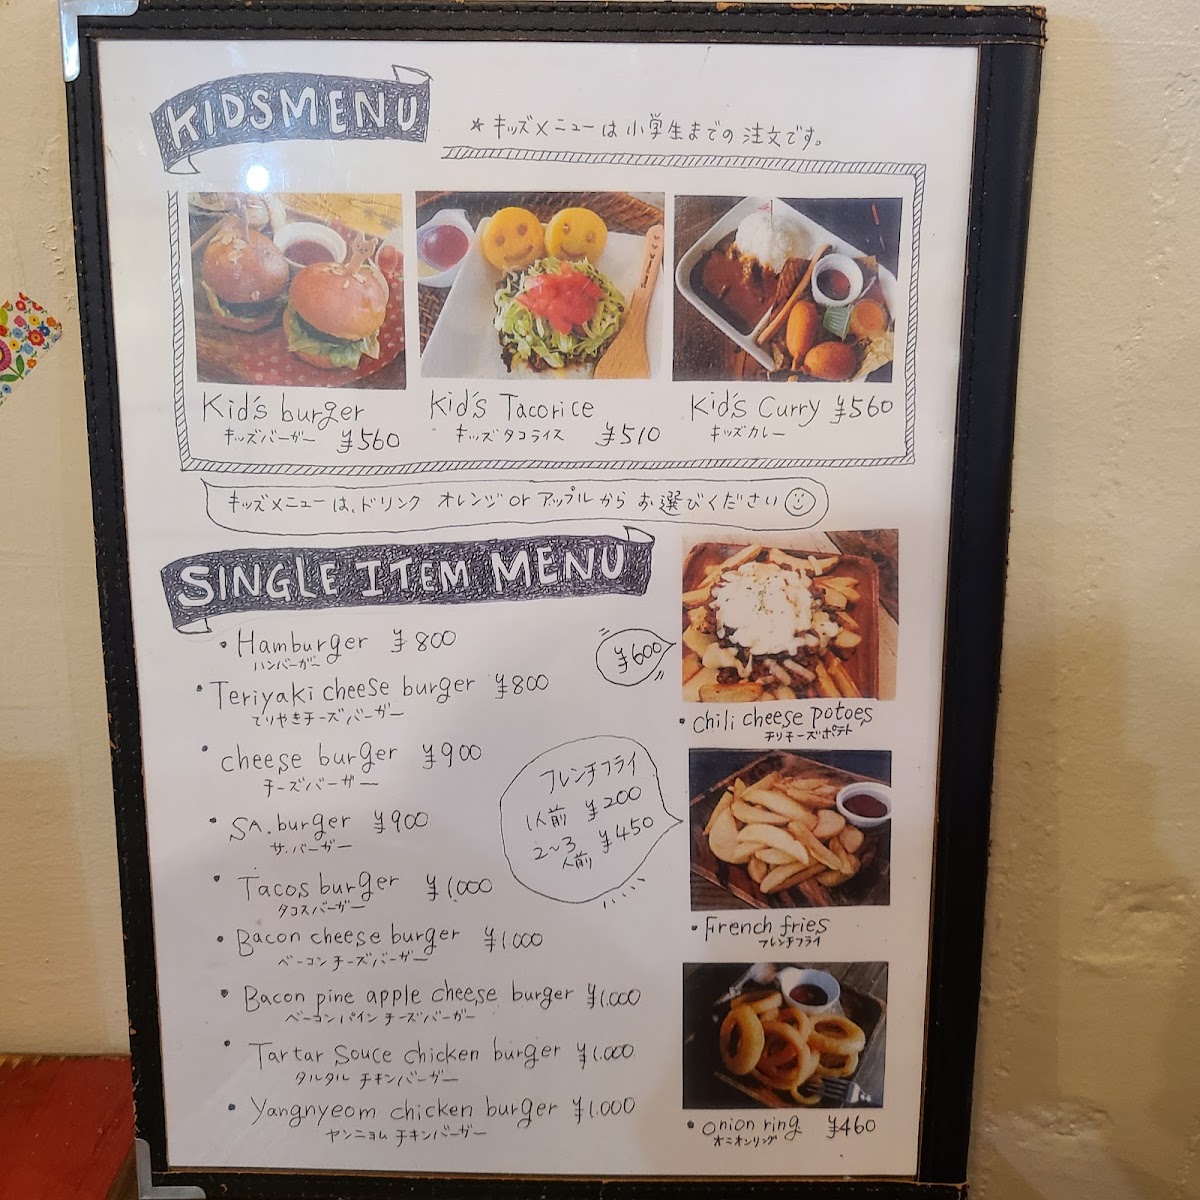 KIDSMENU
★キッズメニューは小学生までの注文です。
Kid's burger
キッズバーガー ¥560
Kid's Tacorice
キッズタコライス ¥510
Kid's Curry ¥560
キッズカレー
キッズメニューは、ドリンク オレンジorアップルからお選びください
SINGLE ITEM MENU
・Hamburger ¥800
ハンバーガー
・Teriyaki cheese burger ¥800
てりやきチーズバーガー
・cheese burger ¥900
チーズバーガー
・SA.burger ¥900
サ.バーガー
・Tacos burger ¥1.000
タコスバーガー
・Bacon cheese burger ¥1.000
ベーコンチーズバーガー
・Bacon pine apple cheese burger ¥1.000
ベーコンパインチーズバーガー
・Tartar Souce chicken burger ¥1.000
タルタルチキンバーガー
・Yangnyeom chicken burger ¥1.000
ヤンニョムチキンバーガー
¥600
・chili cheese potoes
チリチーズポテト
フレンチフライ
1人前 ¥200
2〜3人前 ¥450
・French fries
フレンチフライ
・onion ring ¥460
オニオンリング